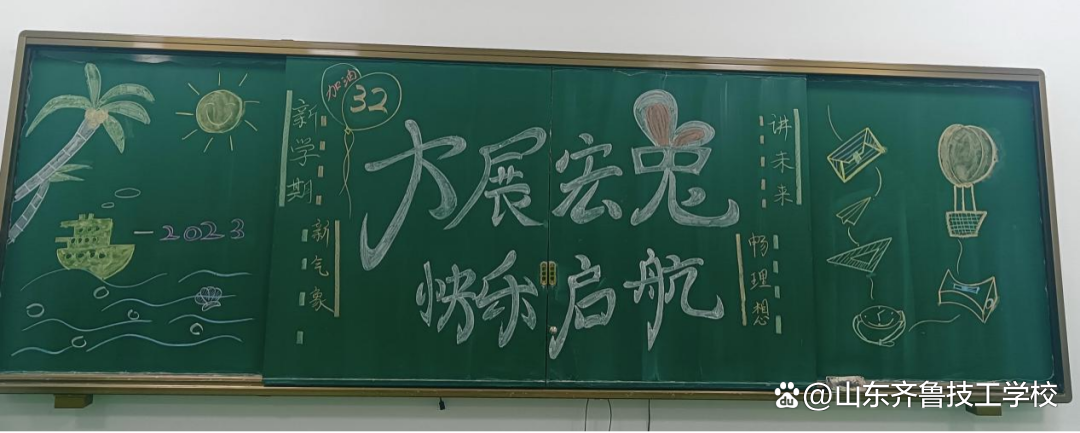 加油
32
新学期
新气象
大展宏兔
快乐启航
讲未来
畅理想
2023
du @山东齐鲁技工学校